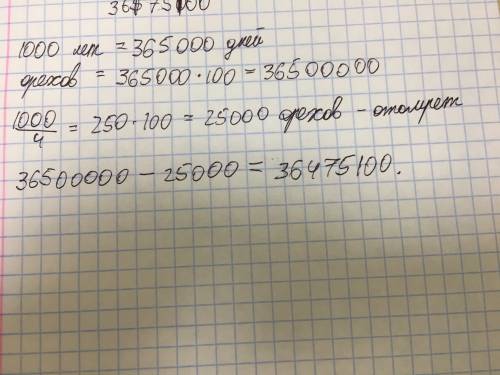 1000 лет = 365000 дней
орехов = 365000 · 100 = 36500000
1000/4 = 250 · 100 = 25000 орехов - отомрет
36500000 - 25000 = 36475100.